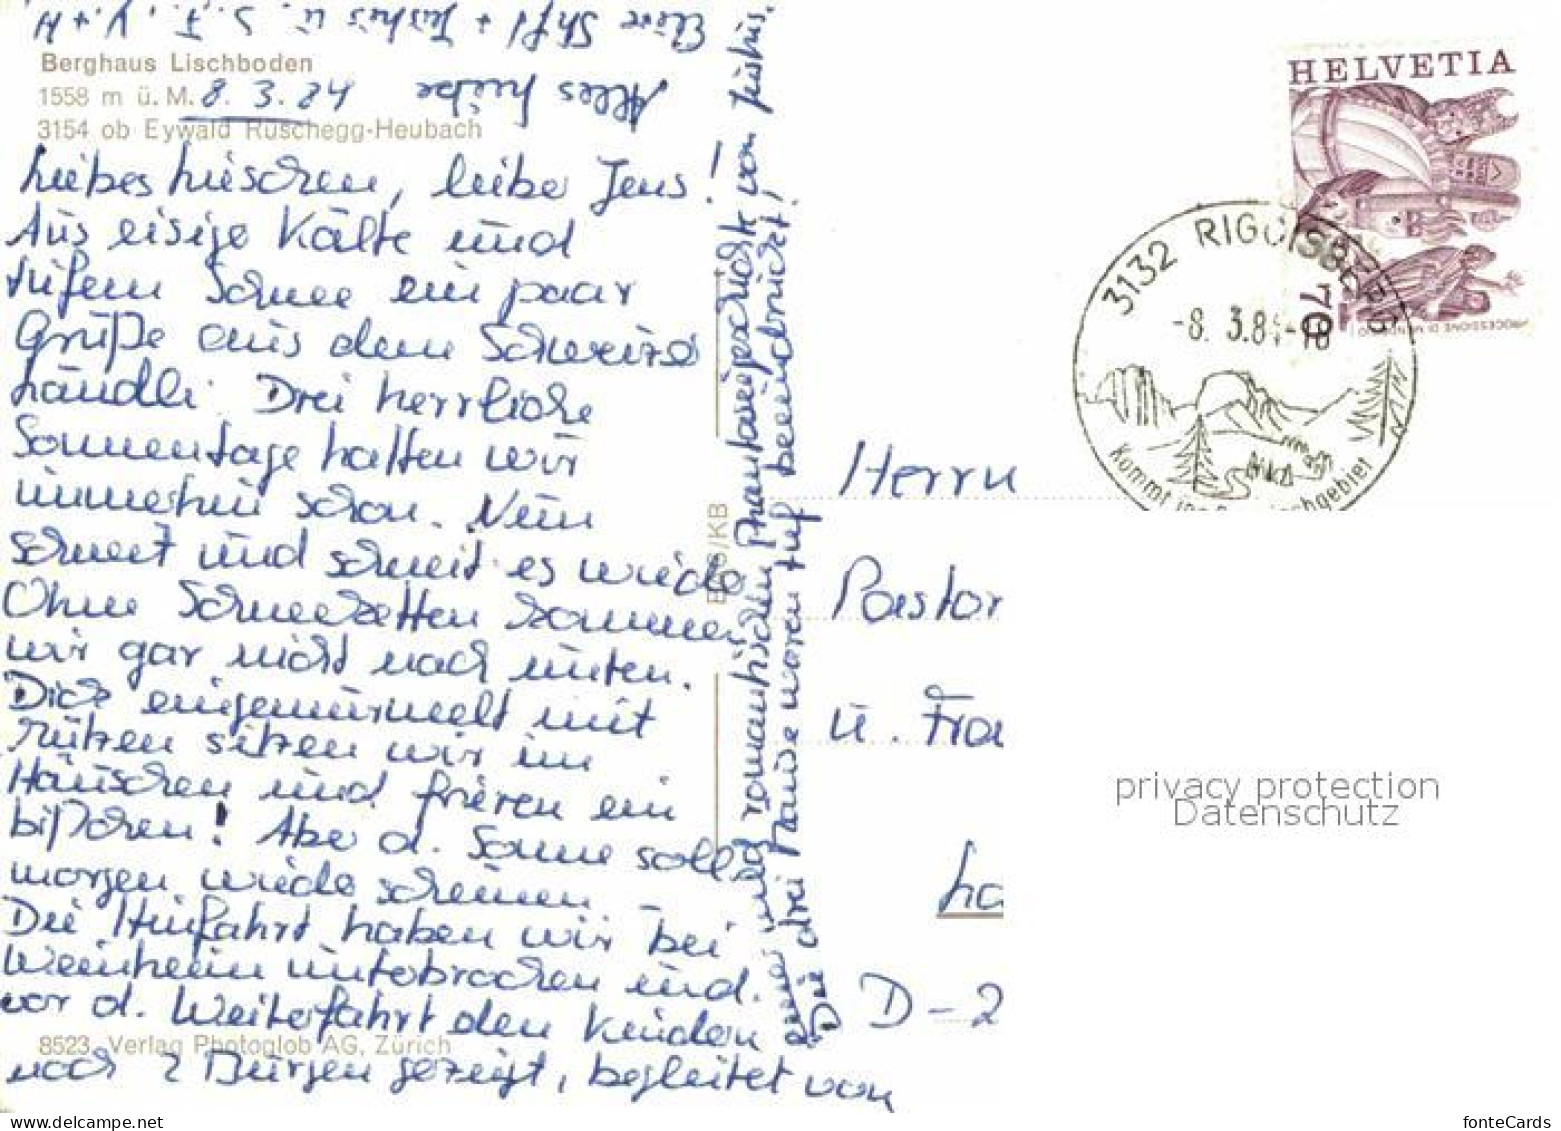 Berghaus Lischboden
1558 m ü. M. 8. 3. 84
3154 ob Eywald Rüschegg-Heubach
liebes lieschen, lieber Jens!
Aus eisiger Kälte und
tiefem Schnee ein paar
Grüße aus dem Schweizer
ländli. Drei herrliche
Sonnentage hatten wir
immerhin schon. Nun
schneit und schneit es wieder
Ohne Schneeketten kommen
wir gar nicht nach unten.
Dick eingemummelt mit
Mützen sitzen wir im
Häuschen und frieren ein
bißchen! Aber d. Sonne soll
morgen wieder scheinen.
Die Hinfahrt haben wir bei
Weinheim unterbrochen und
vor d. Weiterfahrt den Kindern
noch 2 Burgen gezeigt, begleitet von
einer romantischen Phantasiegeschichte von Justus.
Die drei Mäuse waren tief beeindruckt!
Alles liebe
8523 Verlag Photoglob AG, Zürich
HELVETIA
70
3132 RIGGISBERG
-8. 3.84-18
Kommt ins Gantrischgebiet
Herrn
Pastor
u. Frau
D-2
privacy protection
Datenschutz
www.delcampe.net
fonteCards